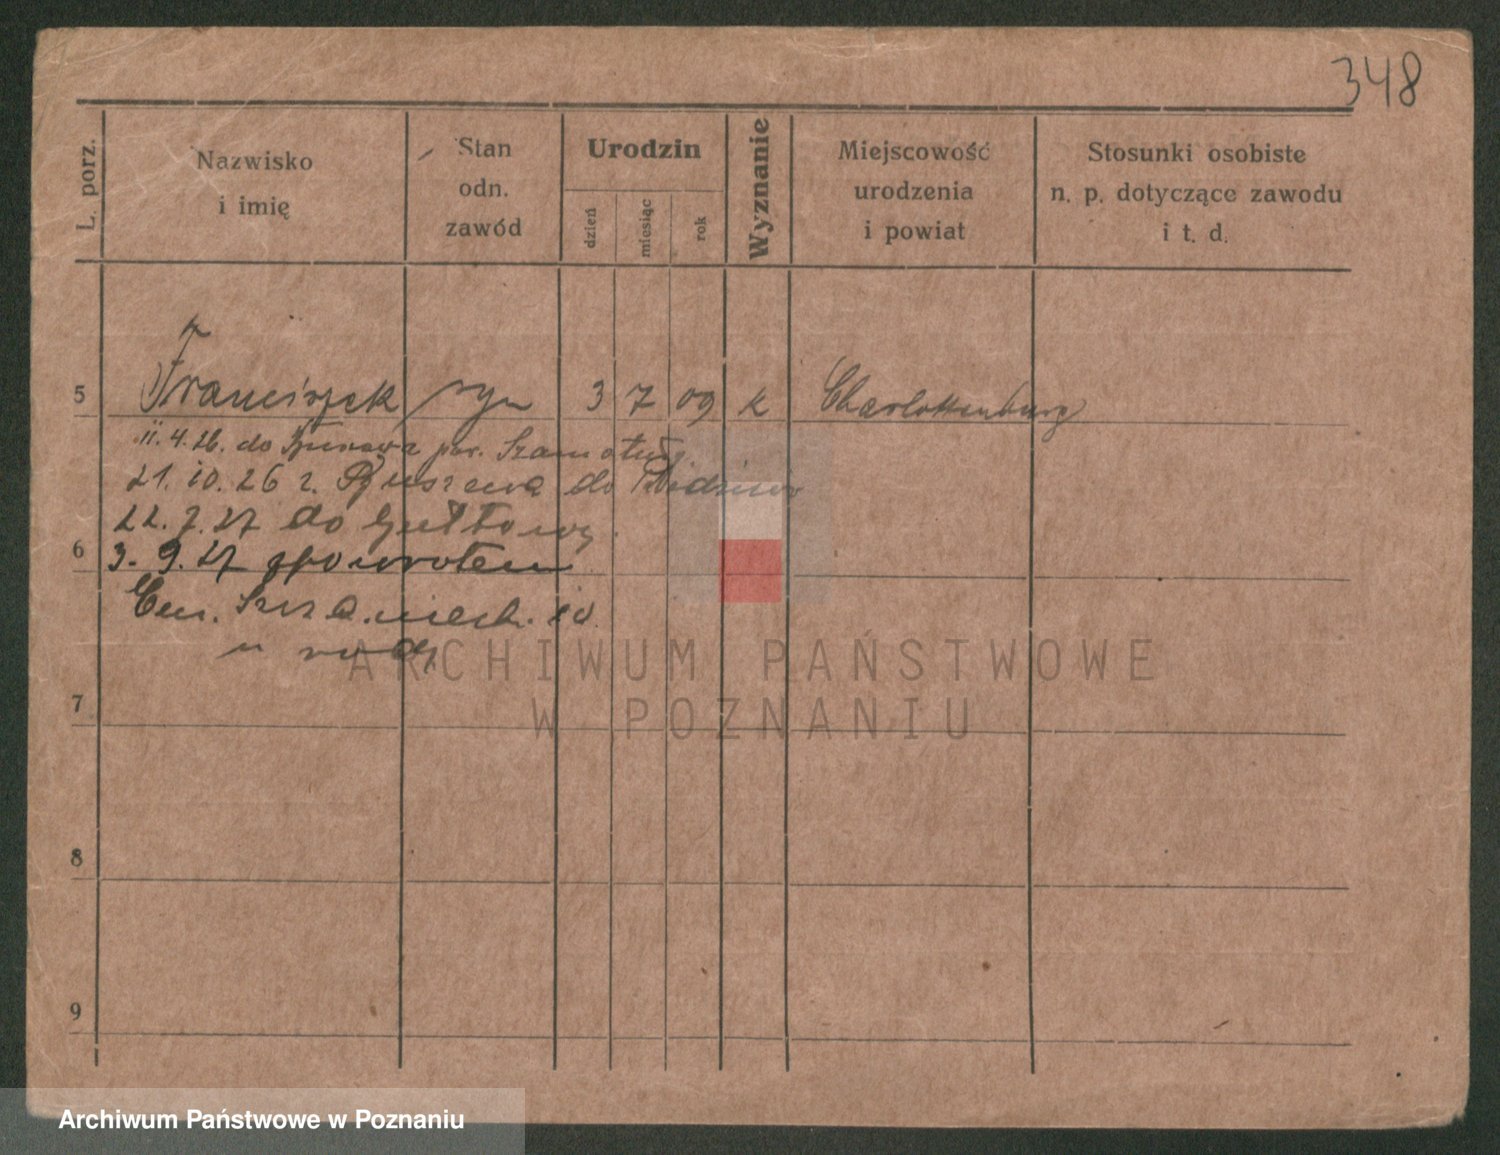 348
L. porz.
Nazwisko
i imię
Stan
odn.
zawód
Urodzin
dzień
miesiąc
rok
Wyznanie
Miejscowość
urodzenia
i powiat
Stosunki osobiste
n. p. dotyczące zawodu
i t. d.
5 Franciszek syn 3 7 09 k Charlottenburg
11. 4. 26. do pow. Szamotuły
21. 10. 26 z do
22. 7. 27 do Gułtowy.
6
3. 9. 27 spowrotem
u rodz.
7
8
9
ARCHIWUM PAŃSTWOWE
W POZNANIU
Archiwum Państwowe w Poznaniu